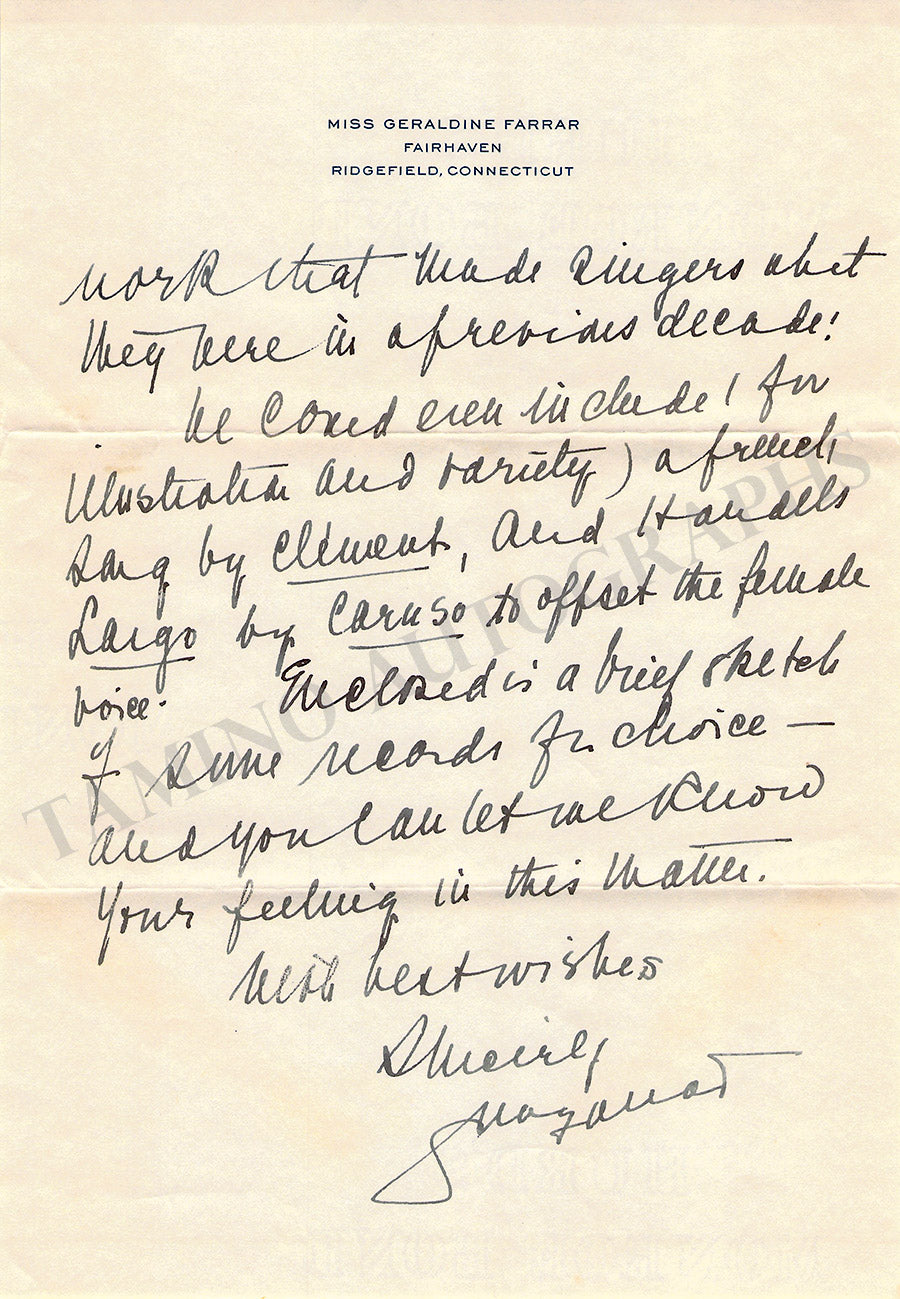 MISS GERALDINE FARRAR
FAIRHAVEN
RIDGEFIELD, CONNECTICUT
work that made singers what
they were in a previous decade!
We could even include (for
illustration and variety) a french
song by Clément, and Handells
Largo by Caruso to offset the female
voice. Enclosed is a brief sketch
of some records for choice —
and you can let me know
your feeling in this matter.
With best wishes
Sincerely
TAMINO AUTOGRAPHS